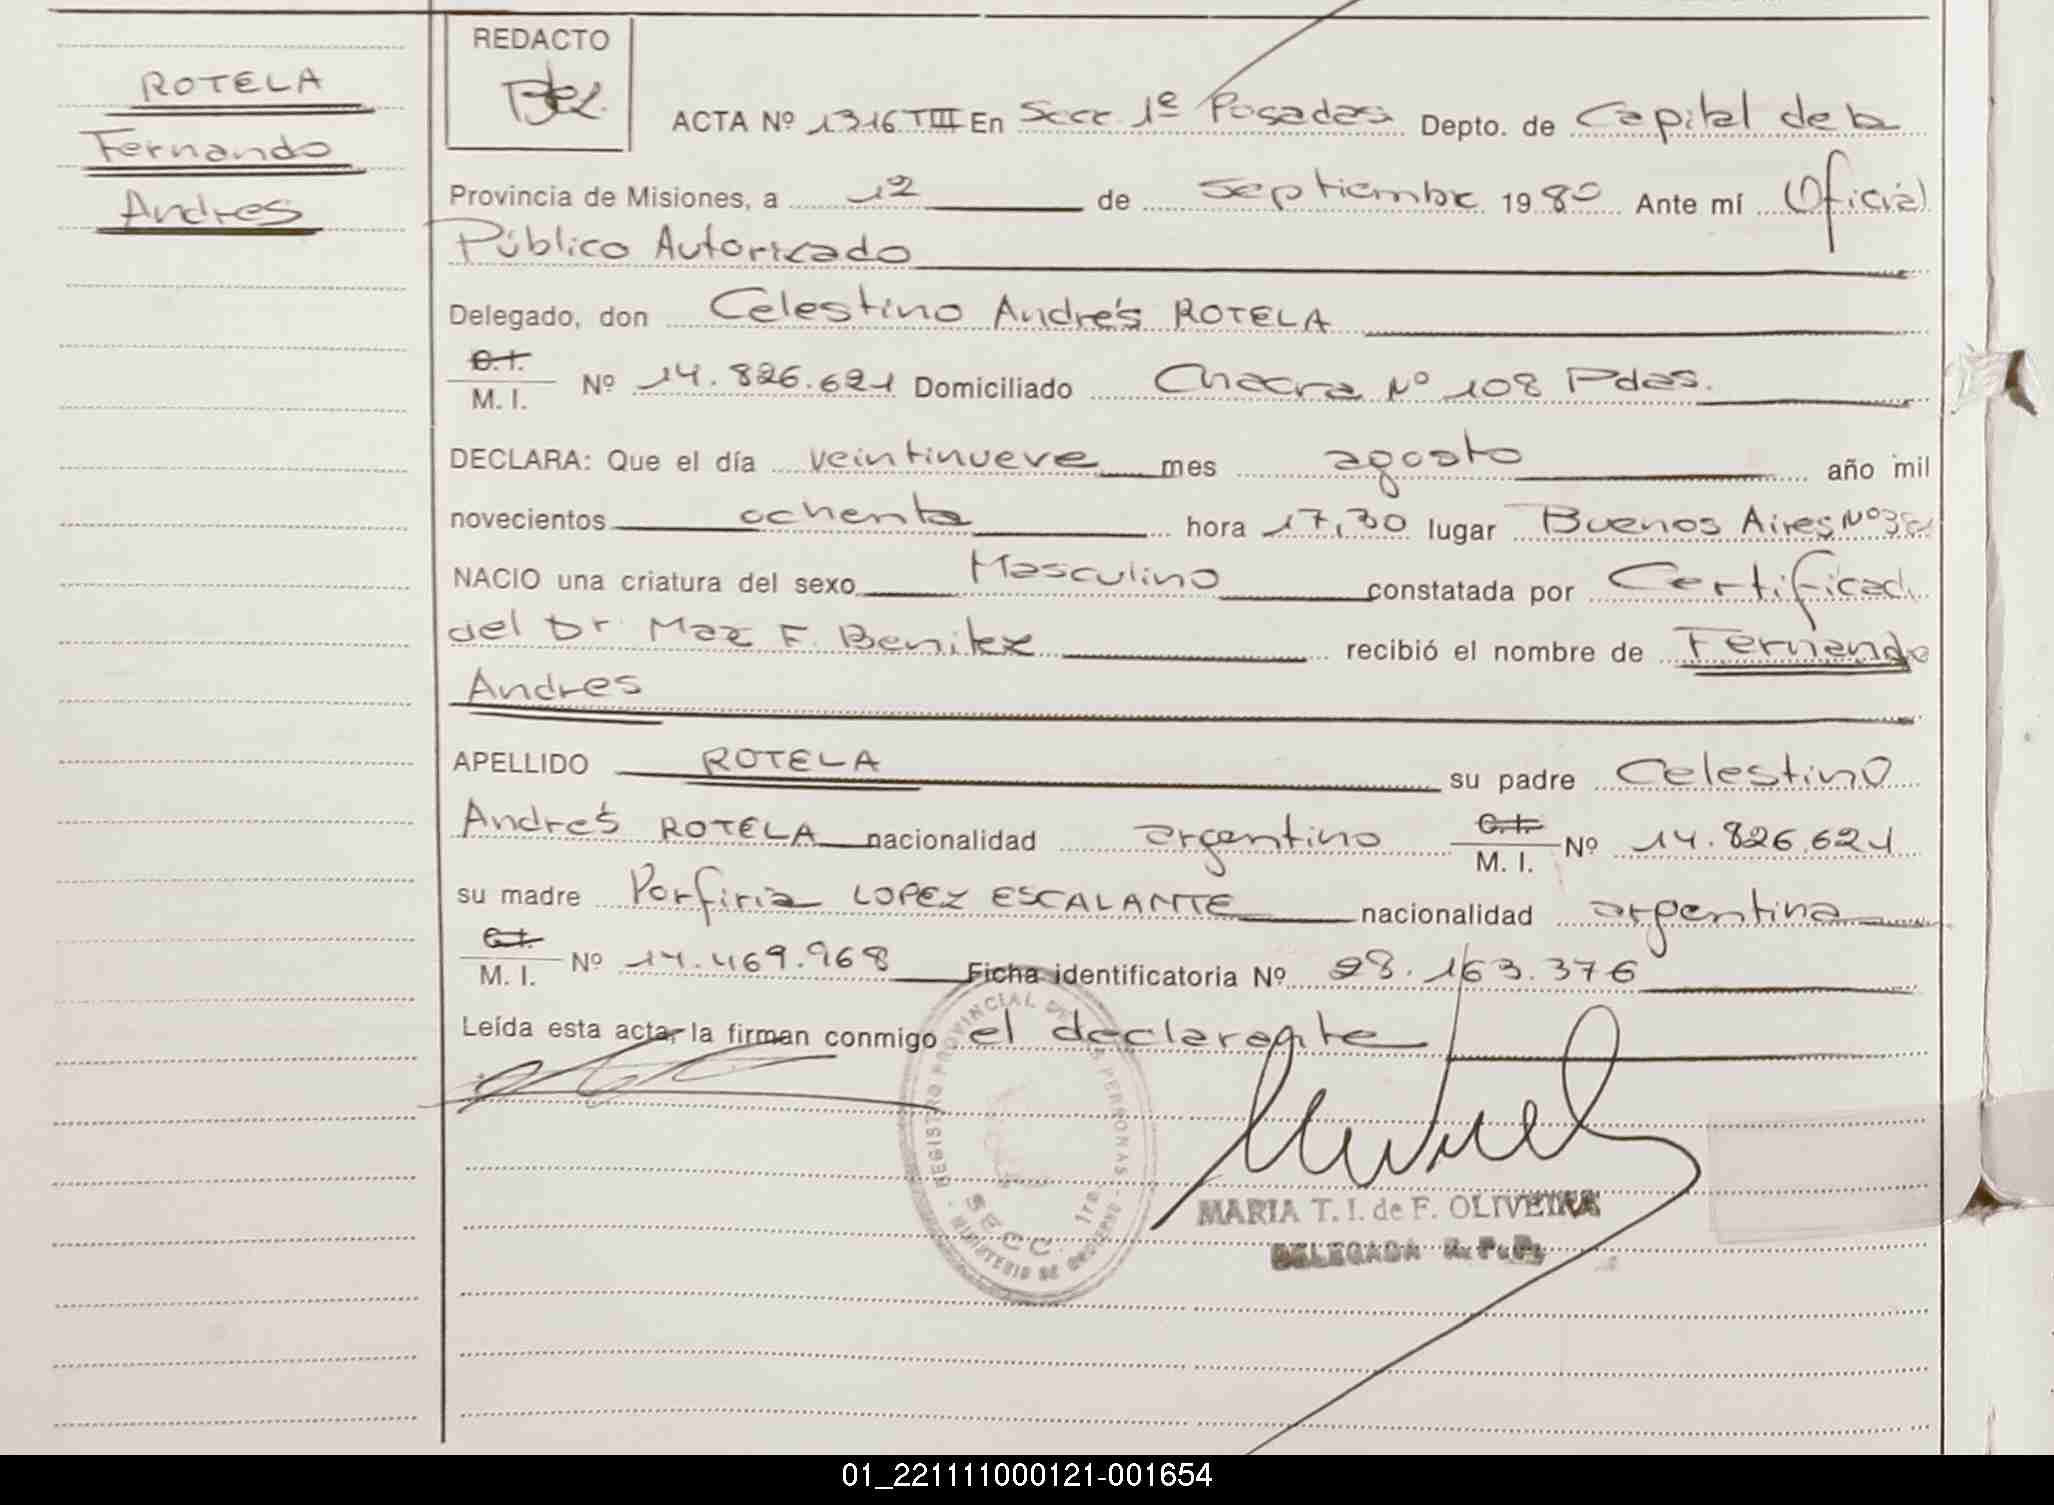 ROTELA
Fernando
Andres
REDACTO
ACTA Nº 1316 TIII En Secc 1º Posadas Depto. de Capital de la
Provincia de Misiones, a 12 de Septiembre 1980 Ante mí Oficial
Público Autorizado
Delegado, don Celestino Andrés ROTELA
C.I.
M. I. Nº 14.826.621 Domiciliado Chacra Nº 108 Pdas.
DECLARA: Que el día veintinueve mes agosto año mil
novecientos ochenta hora 17,30 lugar Buenos Aires Nº
NACIO una criatura del sexo Masculino constatada por Certificad
del Dr. Max F. Benitez recibió el nombre de Fernando
Andres
APELLIDO ROTELA su padre Celestino
Andrés ROTELA nacionalidad argentino C.I.
M. I. Nº 14.826.621
su madre Porfiria LOPEZ ESCALANTE nacionalidad argentina
C.I.
M. I. Nº 14.469.968 Ficha identificatoria Nº 28.163.376
Leída esta acta, la firman conmigo el declarante
REGISTRO PROVINCIAL DE LAS PERSONAS
SECC. 1ra.
MINISTERIO DE GOBIERNO
MARIA T. I. de F. OLIVEIRA
DELEGADA R. P. P.
01_221111000121-001654